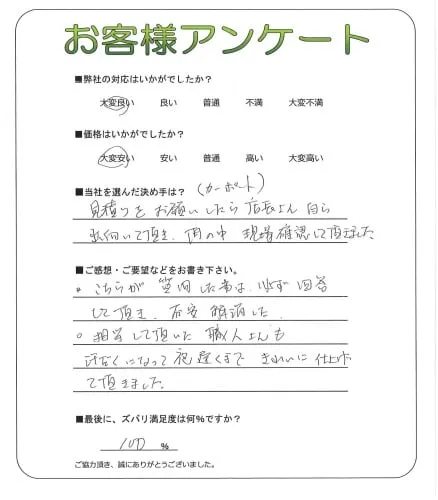 お客様アンケート
■弊社の対応はいかがでしたか？
大変良い 良い 普通 不満 大変不満
■価格はいかがでしたか？
大変安い 安い 普通 高い 大変高い
■当社を選んだ決め手は？ (カーポート)
見積りをお願いしたら店長さん自ら
出向いて頂き、雨の中 現場確認して頂きました
■ご感想・ご要望などをお書き下さい。
。こちらが質問した事は、必ず回答
して頂き、不安解消した。
。担当して頂いた職人さんも
汗だくになって夜遅くまで きれいに仕上げ
て頂きました
■最後に、ズバリ満足度は何%ですか？
100 %
ご協力頂き、誠にありがとうございました。